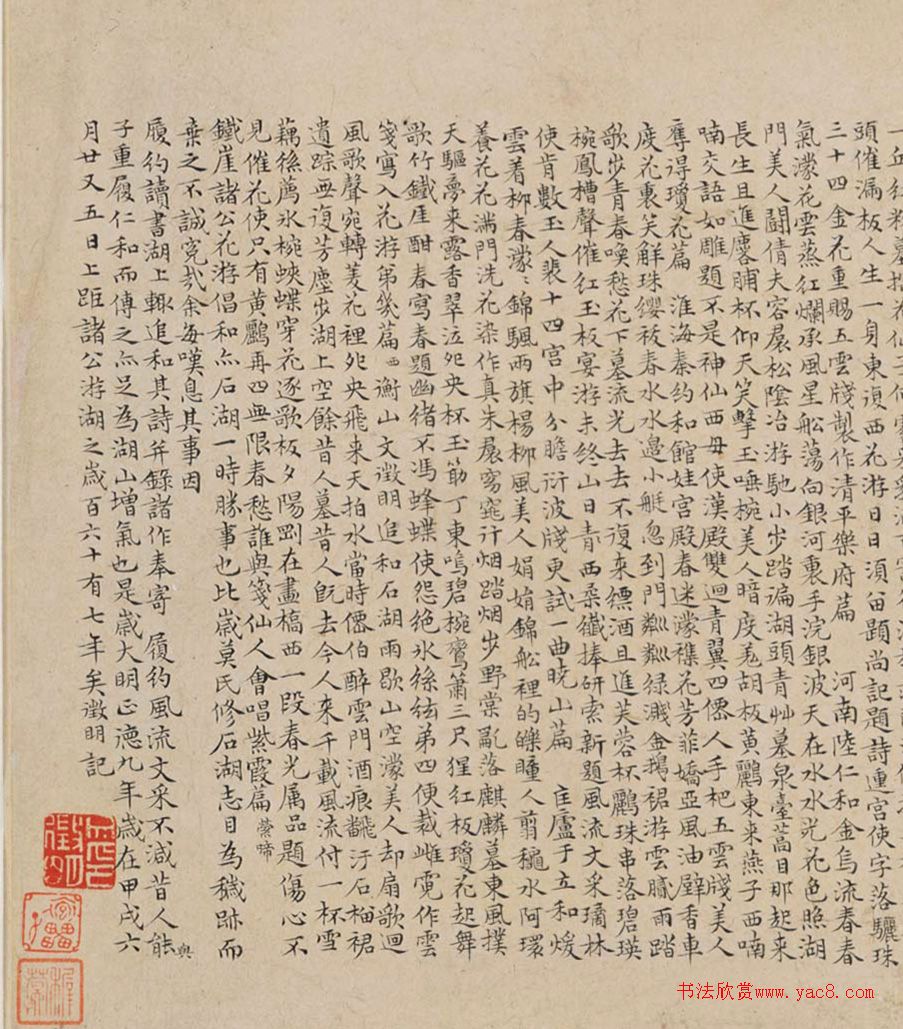 頭催漏板人生一身東復西花游日日須留題尚記題詩連宮使字落驪珠
三十四金花重賜五雲牋製作清平樂府篇　河南陸仁和金烏流春春
氣濛花雲蒸紅爛承風星船蕩向銀河裏手浣銀波天在水水光花色照湖
門美人鬪倩夫容屐松陰冶游馳小步踏遍湖頭青艸墓泉臺蒿目那起來
長生且進麐脯杯仰天笑擊玉唾椀美人暗度羗胡板黃鸝東來燕子西喃
喃交語如雕題不是神仙西母使漢殿雙迴青翼四僊人手杷五雲牋美人
奪得瓊花篇　淮海秦約和館娃宮殿春迷濛襍花芳菲嬌亞風油壁香車
度花裏笑解珠纓祓春水水邊小艇忽到門粼粼綠濺金鵝裙游雲膩雨踏
歌步青春喚愁花下墓流光去去不復來縹酒且進芙蓉杯鸝珠串落碧瑛
椀鳳槽聲催紅玉板宴游未終山日青西桑纖捧研索新題風流文采璚林
使肯數玉人裴十四宮中分贍衍波牋更試一曲曉山篇　匡廬于立和煖
雲着柳春濛〻錦颿兩旗楊柳風美人娟娟錦舩裡的皪瞳人剪穐水阿環
養花花滿門洗花染作真朱屐窈窕计烟踏烟步野棠亂落麒麟墓東風撲
天驅夢來露香翠泣夗央杯玉筯丁東鳴碧椀鸞簫三尺猩紅板瓊花起舞
歌竹鐵崖酣春寫春題幽緒不馮蜂蝶使怨絶氷絲絃弟四使裁雌霓作雲
箋寫入花游弟幾篇　衡山文徵明追和石湖雨歇山空濛美人却扇歌迴
風歌聲宛轉菱花裡夗央飛來天拍水當時僊伯醉雲門酒痕飜汙石榴裙
遺踪無復芳塵步湖上空餘昔人墓昔人既去今人來千載風流付一杯雪
藕絲薦氷椀蛺蝶穿花逐歌板夕陽剛在畫橋西一段春光属品題傷心不
見催花使只有黃鸝再四無限春愁誰與箋仙人會唱紫霞篇　鶯啼
鐵崖諸公花游倡和亦石湖一時勝事也比歲莫氏修石湖志目為穢跡而
棄之不誠寃哉余每嘆息其事因
履約讀書湖上輙追和其詩并錄諸作奉寄　履約風流文采不減昔人能與
子重履仁和而傳之亦足為湖山增氣也是歲大明正德九年歲在甲戌六
月廿又五日上距諸公游湖之歲百六十有七年矣徵明記
书法欣赏www.yac8.com